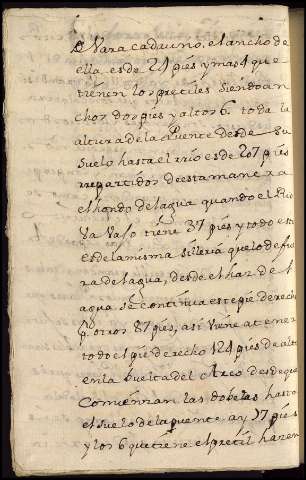 de Vara cada uno, el ancho de
ella es de 21 pies y mas 4 que
tienen los pretiles siendo an
chos dos pies y altos 6. toda la
altura de la Puente desde su
suelo hasta el rrio es de 207 pies
rrepartidos de esta manera
el hondo del agua quando el Rio
Va Vaso tiene 37 pies y todo esto
es de la misma silleria que lo de fue
ra del agua, desde el haz del
agua se continua este pie derecho
por otros 87 pies, asi viene a tener
todo el pie derecho 124 pies de alto
en la Vuelta del Arco desde que
Comienzan las dobelas hasta
el suelo de la puente ay 77 pies
y los 6 que tiene el pretil hazen